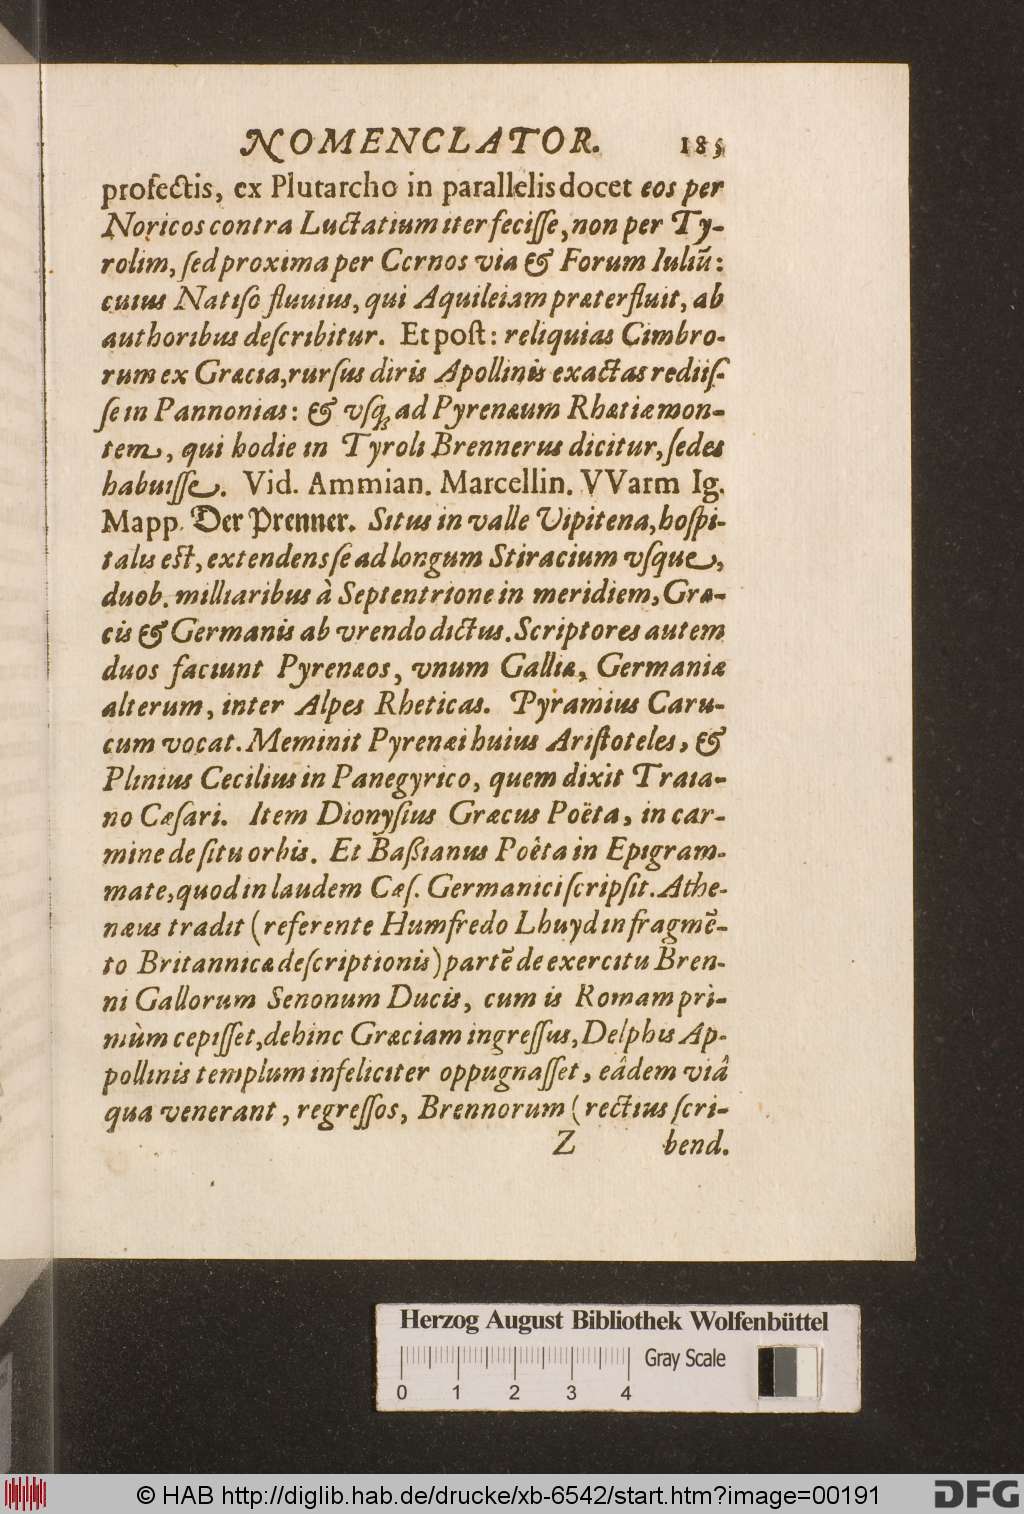 NOMENCLATOR. 185
profectis, ex Plutarcho in parallelis docet eos per
Noricos contra Luctatium iter feciſſe, non per Ty-
rolim, ſed proxima per Cernos via & Forum Iuliū:
cuius Natiſo fluuius, qui Aquileiam præterfluit, ab
authoribus deſcribitur. Et poſt: reliquias Cimbro-
rum ex Græcia, rurſus diris Apollinis exactas rediiſ-
ſe in Pannonias: & vſq; ad Pyrenæum Rhætiæ mon-
tem, qui hodie in Tyroli Brennerus dicitur, ſedes
habuiſſe. Vid. Ammian. Marcellin. VVarm Ig.
Mapp. Der Prenner. Situs in valle Vipitena, hoſpi-
talis eſt, extendens ſe ad longum Stiracium vſque,
duob. milliaribus à Septentrione in meridiem, Græ-
cis & Germanis ab vrendo dictus. Scriptores autem
duos faciunt Pyrenæos, vnum Galliæ, Germaniæ
alterum, inter Alpes Rheticas. Pyramius Caru-
cum vocat. Meminit Pyrenæi huius Ariſtoteles, &
Plinius Cecilius in Panegyrico, quem dixit Traia-
no Cæſari. Item Dionyſius Græcus Poëta, in car-
mine de ſitu orbis. Et Baßianus Poëta in Epigram-
mate, quod in laudem Cæſ. Germanici ſcripſit. Athe-
næus tradit (referente Humfredo Lhuyd in fragmē-
to Britannicæ deſcriptionis) partē de exercitu Bren-
ni Gallorum Senonum Ducis, cum is Romam prì-
mùm cepiſſet, dehinc Græciam ingreſſus, Delphis Ap-
pollinis templum infeliciter oppugnaſſet, eâdem viâ
qua venerant, regreſſos, Brennorum (rectius ſcri-
Z bend.
Herzog August Bibliothek Wolfenbüttel
Gray Scale
0 1 2 3 4
© HAB http://diglib.hab.de/drucke/xb-6542/start.htm?image=00191
DFG